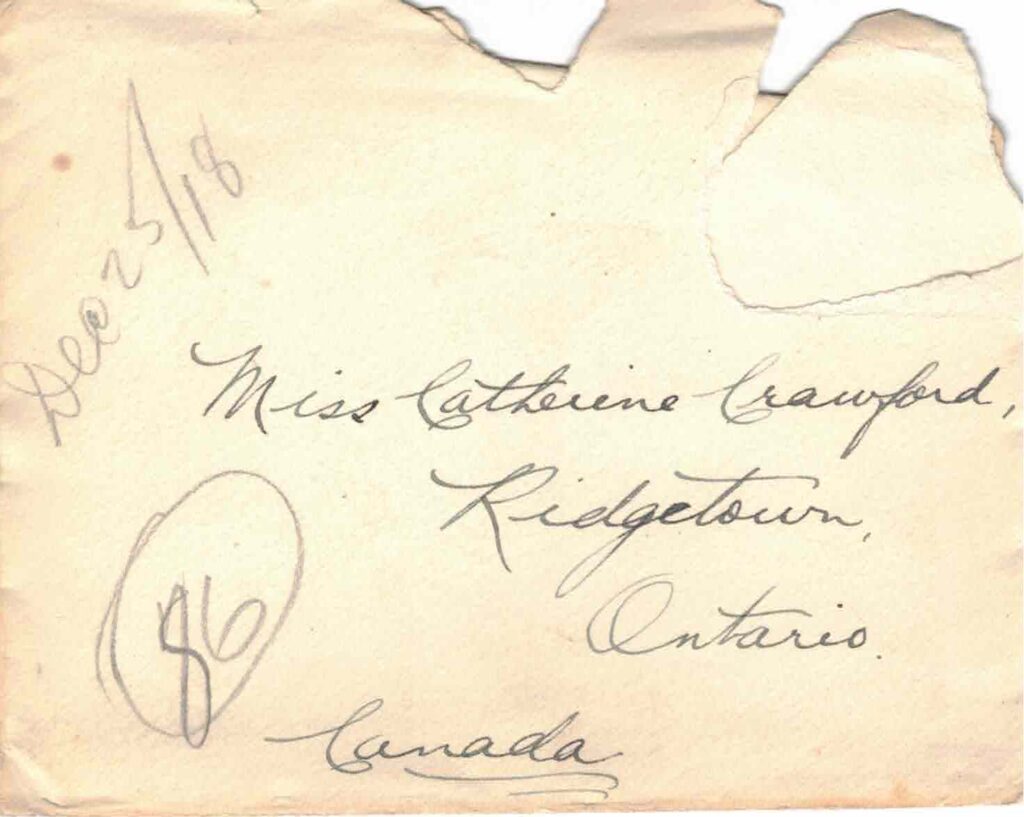 Dec 25/18
Miss Catherine Crawford,
Ridgetown,
Ontario.
86
Canada